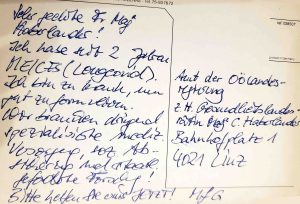 Sehr geehrte Fr. Mag.
Haberlander!
Ich habe seit 2 Jahren
ME/CFS (Longcovid).
Ich bin zu krank, um
gut zu formulieren.
Wir brauchen dringend
spezialisierte mediz.
Versorgung, soz. Ab-
sicherung und
Forschung!
Bitte helfen Sie uns JETZT! MfG
Amt der OÖ Landes-
regierung
z.H. Gesundheitslandes-
rätin Mag. C. Haberlander
Bahnhofplatz 1
4021 Linz